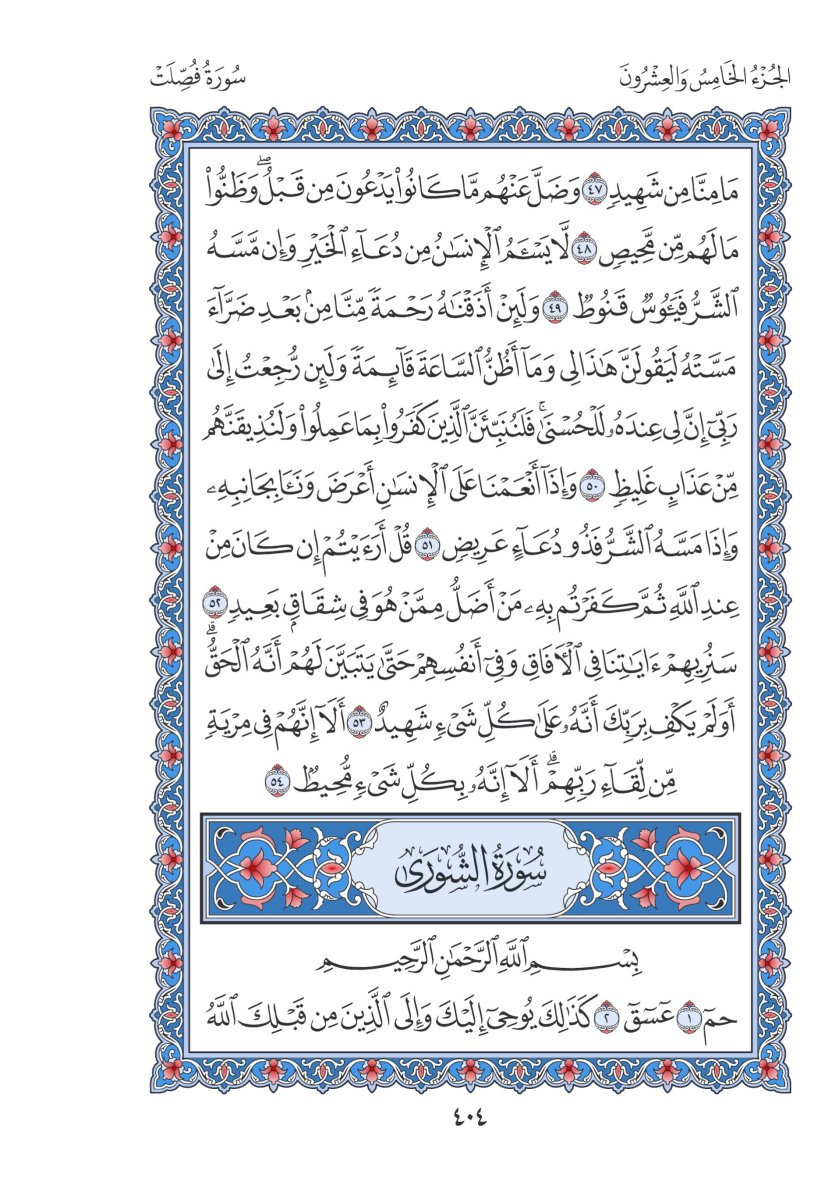 الجُزْءُ الخَامِسُ وَالعِشْرُونَ
سُورَةُ فُصِّلَتْ
مَا مِنَّا مِن شَهِيدٍ ٤٧ وَضَلَّ عَنْهُم مَّا كَانُوا۟ يَدْعُونَ مِن قَبْلُ ۖ وَظَنُّوا۟
مَا لَهُم مِّن مَّحِيصٍ ٤٨ لَّا يَسْـَٔمُ ٱلْإِنسَـٰنُ مِن دُعَآءِ ٱلْخَيْرِ وَإِن مَّسَّهُ
ٱلشَّرُّ فَيَـُٔوسٌ قَنُوطٌ ٤٩ وَلَئِنْ أَذَقْنَـٰهُ رَحْمَةً مِّنَّا مِنۢ بَعْدِ ضَرَّآءَ
مَسَّتْهُ لَيَقُولَنَّ هَـٰذَا لِى وَمَآ أَظُنُّ ٱلسَّاعَةَ قَآئِمَةً وَلَئِن رُّجِعْتُ إِلَىٰ
رَبِّىٓ إِنَّ لِى عِندَهُۥ لَلْحُسْنَىٰ ۚ فَلَنُنَبِّئَنَّ ٱلَّذِينَ كَفَرُوا۟ بِمَا عَمِلُوا۟ وَلَنُذِيقَنَّهُم
مِّنْ عَذَابٍ غَلِيظٍ ٥٠ وَإِذَآ أَنْعَمْنَا عَلَى ٱلْإِنسَـٰنِ أَعْرَضَ وَنَـَٔا بِجَانِبِهِۦ
وَإِذَا مَسَّهُ ٱلشَّرُّ فَذُو دُعَآءٍ عَرِيضٍ ٥١ قُلْ أَرَءَيْتُمْ إِن كَانَ مِنْ
عِندِ ٱللَّهِ ثُمَّ كَفَرْتُم بِهِۦ مَنْ أَضَلُّ مِمَّنْ هُوَ فِى شِقَاقٍۭ بَعِيدٍ ٥٢
سَنُرِيهِمْ ءَايَـٰتِنَا فِى ٱلْـَٔافَاقِ وَفِىٓ أَنفُسِهِمْ حَتَّىٰ يَتَبَيَّنَ لَهُمْ أَنَّهُ ٱلْحَقُّ ۗ
أَوَلَمْ يَكْفِ بِرَبِّكَ أَنَّهُۥ عَلَىٰ كُلِّ شَىْءٍ شَهِيدٌ ٥٣ أَلَآ إِنَّهُمْ فِى مِرْيَةٍ
مِّن لِّقَآءِ رَبِّهِمْ ۗ أَلَآ إِنَّهُۥ بِكُلِّ شَىْءٍ مُّحِيطٌۢ ٥٤
سُورَةُ الشُّورَىٰ
بِسْمِ ٱللَّهِ ٱلرَّحْمَـٰنِ ٱلرَّحِيمِ
حمٓ ١ عٓسٓقٓ ٢ كَذَٰلِكَ يُوحِىٓ إِلَيْكَ وَإِلَى ٱلَّذِينَ مِن قَبْلِكَ ٱللَّهُ
٤٠٤